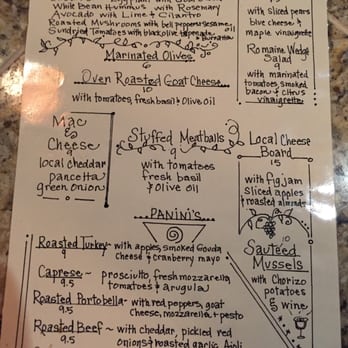 White Bean Hummus with Rosemary
Avocado with Lime & Cilantro
Roasted Mushrooms with bell peppers, sesame
Sundried Tomatoes with black olive &
Marinated Olives
6
Oven Roasted Goat Cheese
10
with tomatoes, fresh basil & Olive oil
Mac
&
Cheese
9
local cheddar
pancetta
green onion
Stuffed Meatballs
9
with tomatoes
fresh basil
& Olive oil
with sliced pears
blue cheese &
maple vinaigrette
Romaine Wedge
Salad
8
with marinated
tomatoes, smoked
bacon & citrus
vinaigrette
Local Cheese
Board
15
with fig jam
sliced apples
& roasted almonds
Sauteed
Mussels
10
with Chorizo
potatoes
& wine
PANINI'S
Roasted Turkey ~ with apples, smoked Gouda
9
Cheese & cranberry mayo
Caprese ~ prosciutto, fresh mozzarella,
9.5
tomatoes & arugula
Roasted Portobella ~ with red peppers, goat
9.5
Cheese, mozzarella & pesto
Roasted Beef ~ with cheddar, pickled red
9.5
Onions & roasted garlic Aioli